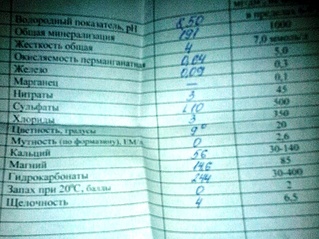 Водородный показатель, pH 8,50 в пределах 6
Общая минерализация 191 1000
Жесткость общая 4 7,0 ммоль/л
Окисляемость перманганатная 0,04 5,0
Железо 0,09 0,3
Марганец — 0,1
Нитраты 3 45
Сульфаты 500
Хлориды 3 350
Цветность, градусы 9° 20
Мутность (по формазину), ЕМ 0 2,6
Кальций 56 30-140
Магний 14,6 85
Гидрокарбонаты 244 30-400
Запах при 20°С, баллы 0 2
Щелочность 4 6,5